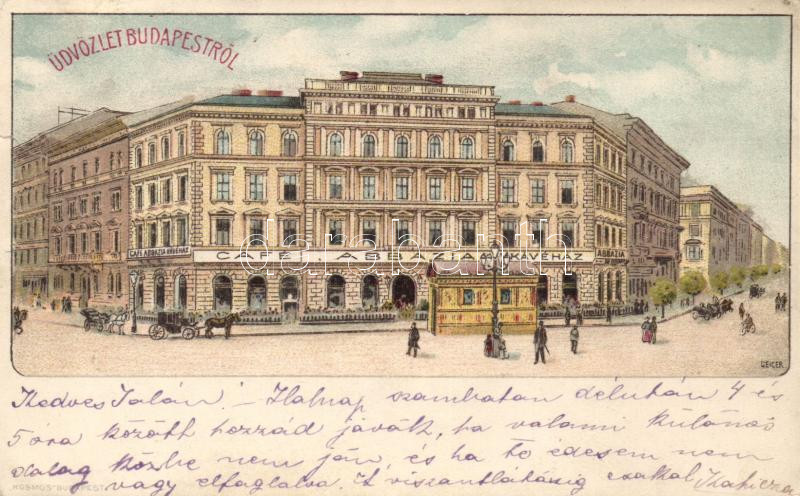 ÜDVÖZLET BUDAPESTRŐL
CAFÉ ABBAZIA KÁVÉHÁZ
CAFÉ ABBAZIA KÁVÉHÁZ
ABBAZIA
darabanth
GEIGER
Kedves Jolán! – Holnap szombaton délután 4 és
5 óra között hozzád jövök, ha valami különös
dolog közbe nem jön, és ha te édesem nem
vagy elfoglalva. A viszontlátásig csókol
KOSMOS BUDAPEST